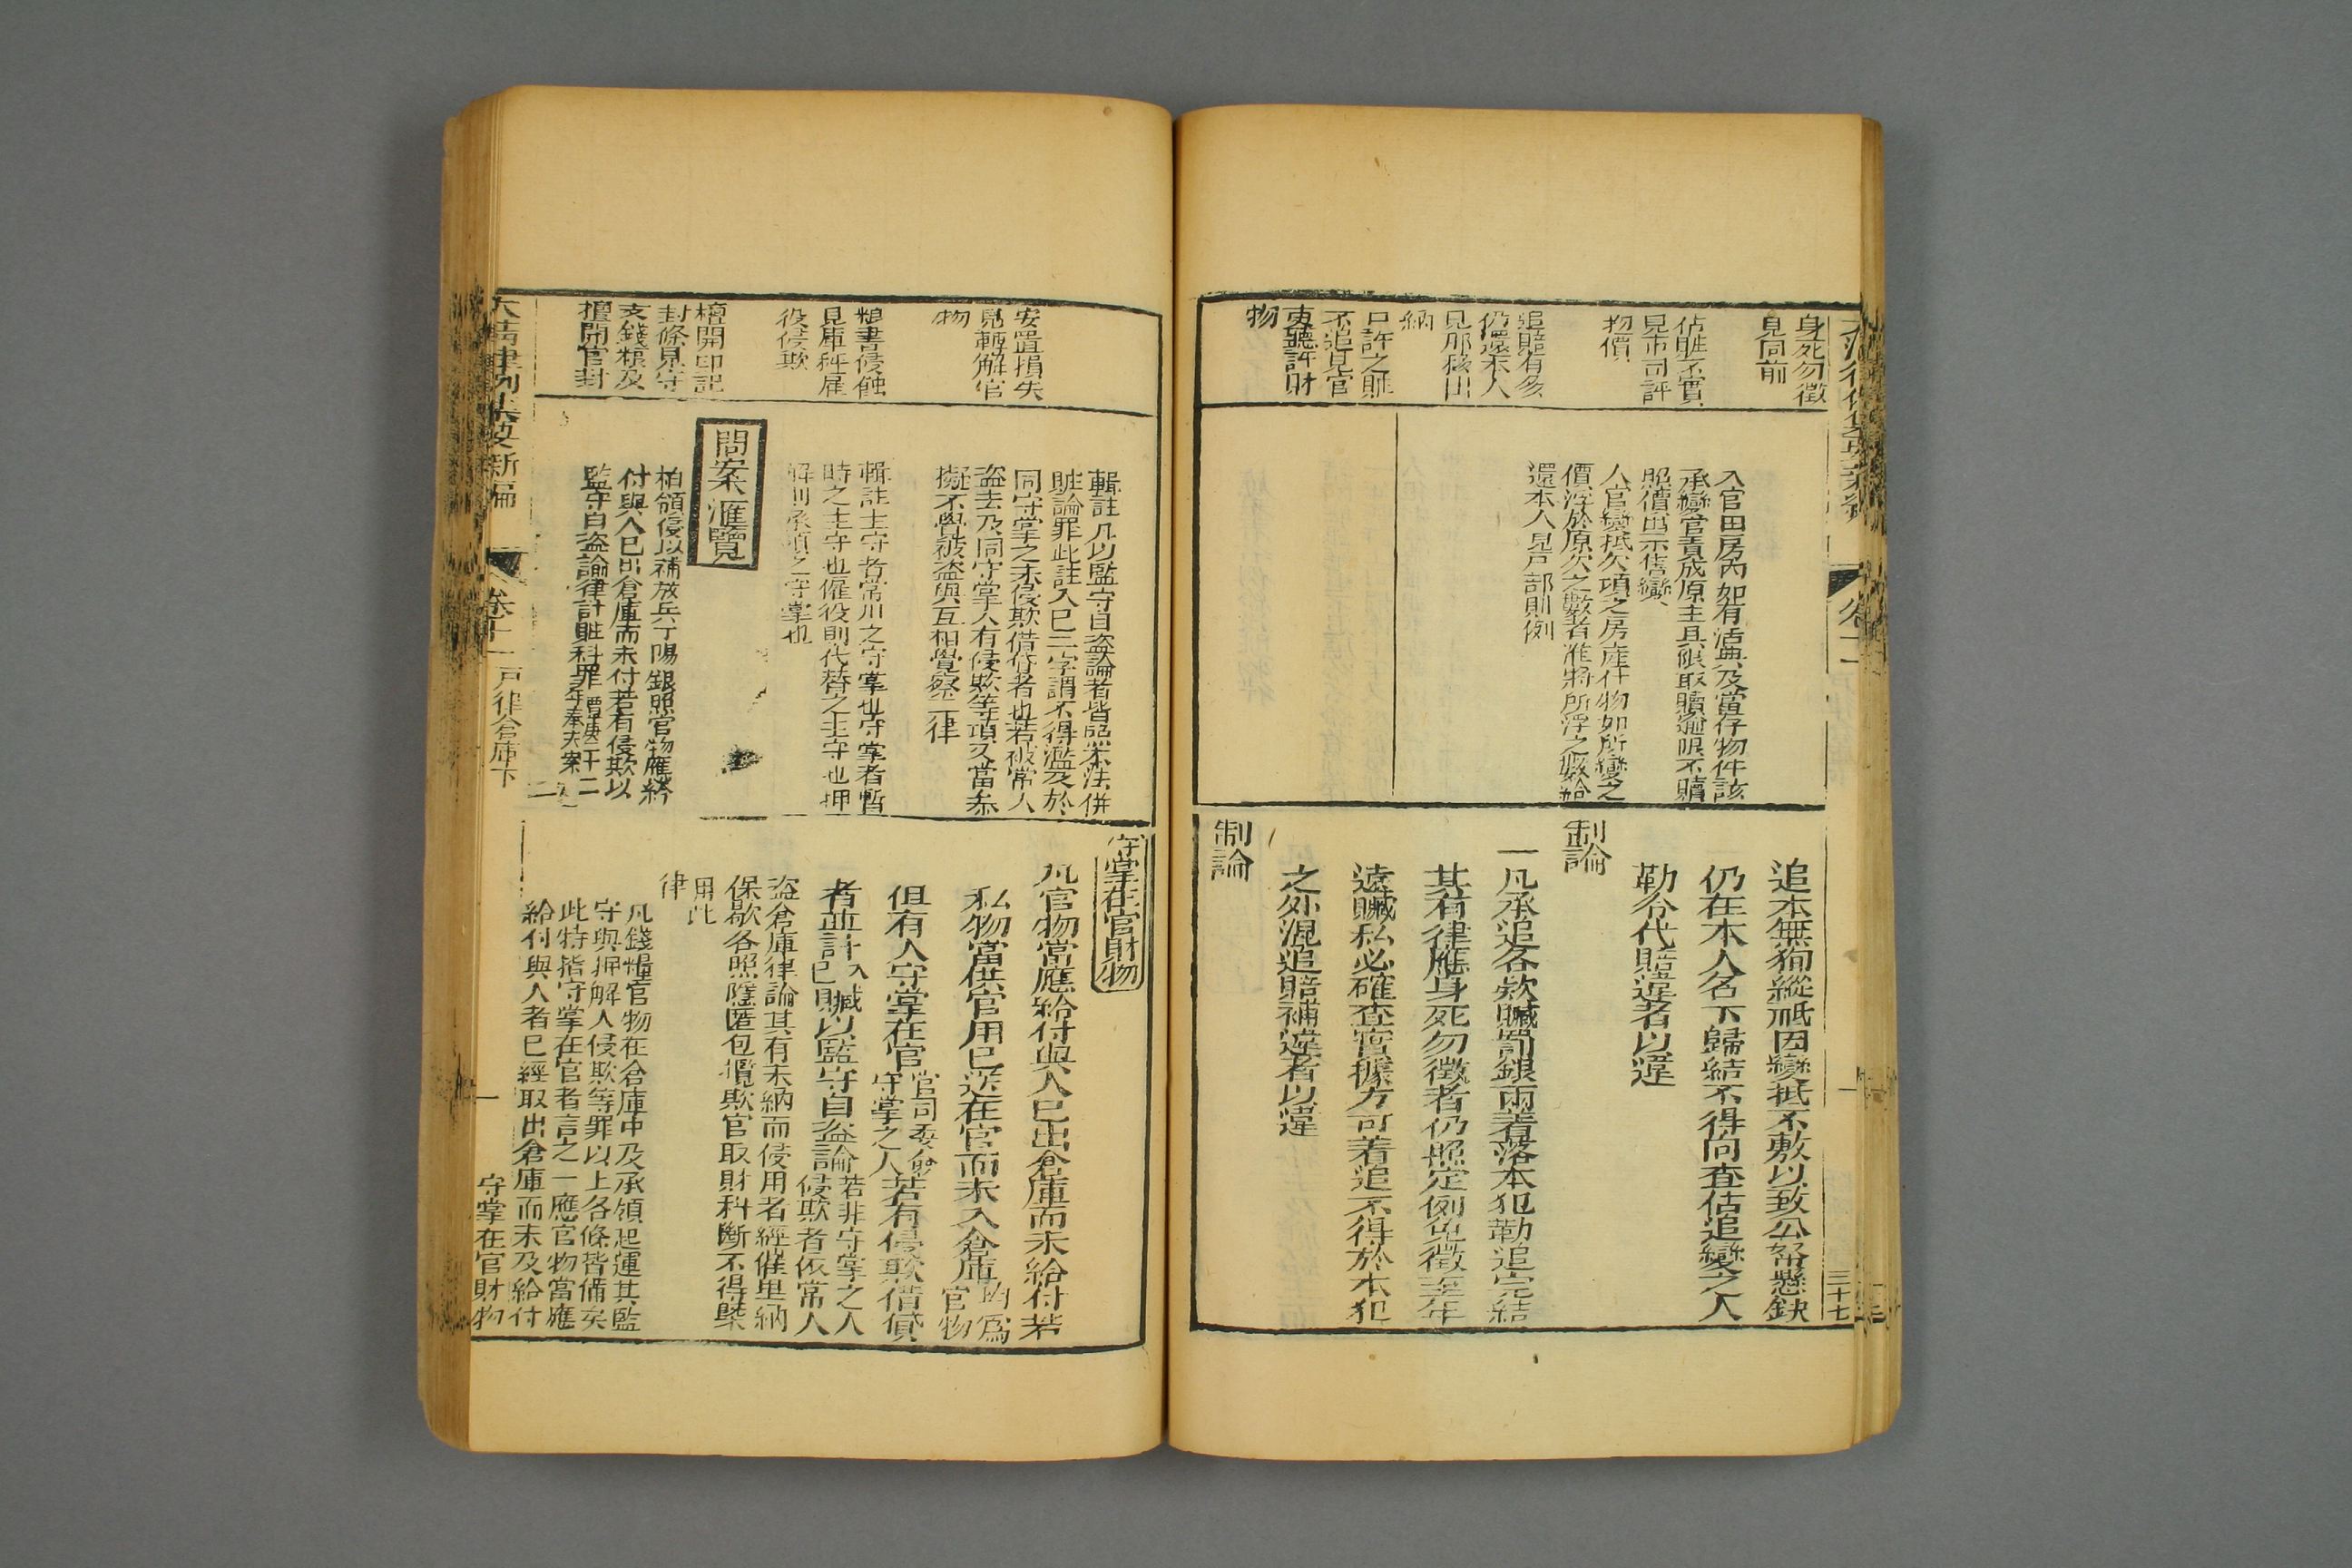 身死勿徵
見同前
估賍不實
見市司評
物價
追賠有多
仍還本人
見那移出
納
只許之賍
不追見官
吏聽許財
物
入官田房內如有活典及當仔物件該
承變官責成原主具限取贖逾限不贖
照價出示售變
入官變抵欠項之房產什物如所變之
價浮於原欠之數者准將所浮之價給
還本人見戶部則例
追本無狥縱祗因變抵不敷以致公帑懸缺
仍在本人名下歸結不得向查估追變之人
勒令代賠違者以違
制論
一凡承追各欵贓罰銀兩着落本犯勒追完結
其有律應身死勿徵者仍照定例免徵至年
遠贓私必確查實據方可着追不得於本犯
之外混追賠補違者以違
制論
三十七
安置損失
見轉解官
物
粮書侵蝕
見庫秤雇
役侵欺
擅開印記
封條見守
支錢粮及
擅開官封
輯註凡以監守自盜論者皆照柒注併
賍論罪此註入已二字謂不得濫及於
同守掌之未侵欺借貸者也若被常人
盜去及同守掌人有侵欺等項又當叅
擬不覺被盜與互相覺察二律
輯註主守者常川之守掌也守掌者暫
時之主守也僱役則代替之主守也押
解則承領之守掌也
問案滙覽
栢領侵以補放兵丁陽銀照官物應給
付與人已出倉庫而未付若有侵欺以
監守自盜論律計賍科罪
守掌在官財物
凡官物當應給付與人已出倉庫而未給付若
私物當供官用已送在官而未入倉庫均為官物
但有人守掌在官官司委僉守掌之人若有侵欺借貸
者並計入已贓以監守自盜論若非守掌之人侵欺者依常人
盜倉庫律論其有未納而侵用者經催里納
保歇各照隱匿包攬欺官取財科斷不得槩
用此
律
凡錢糧官物在倉庫中及承領起運其監
守與押解人侵欺等罪以上各條皆備矣
此特指守掌在官者言之一應官物當應
給付與人者已經取出倉庫而未及給付
大清律例集要新編
卷十一
戶律倉庫下
守掌在官財物